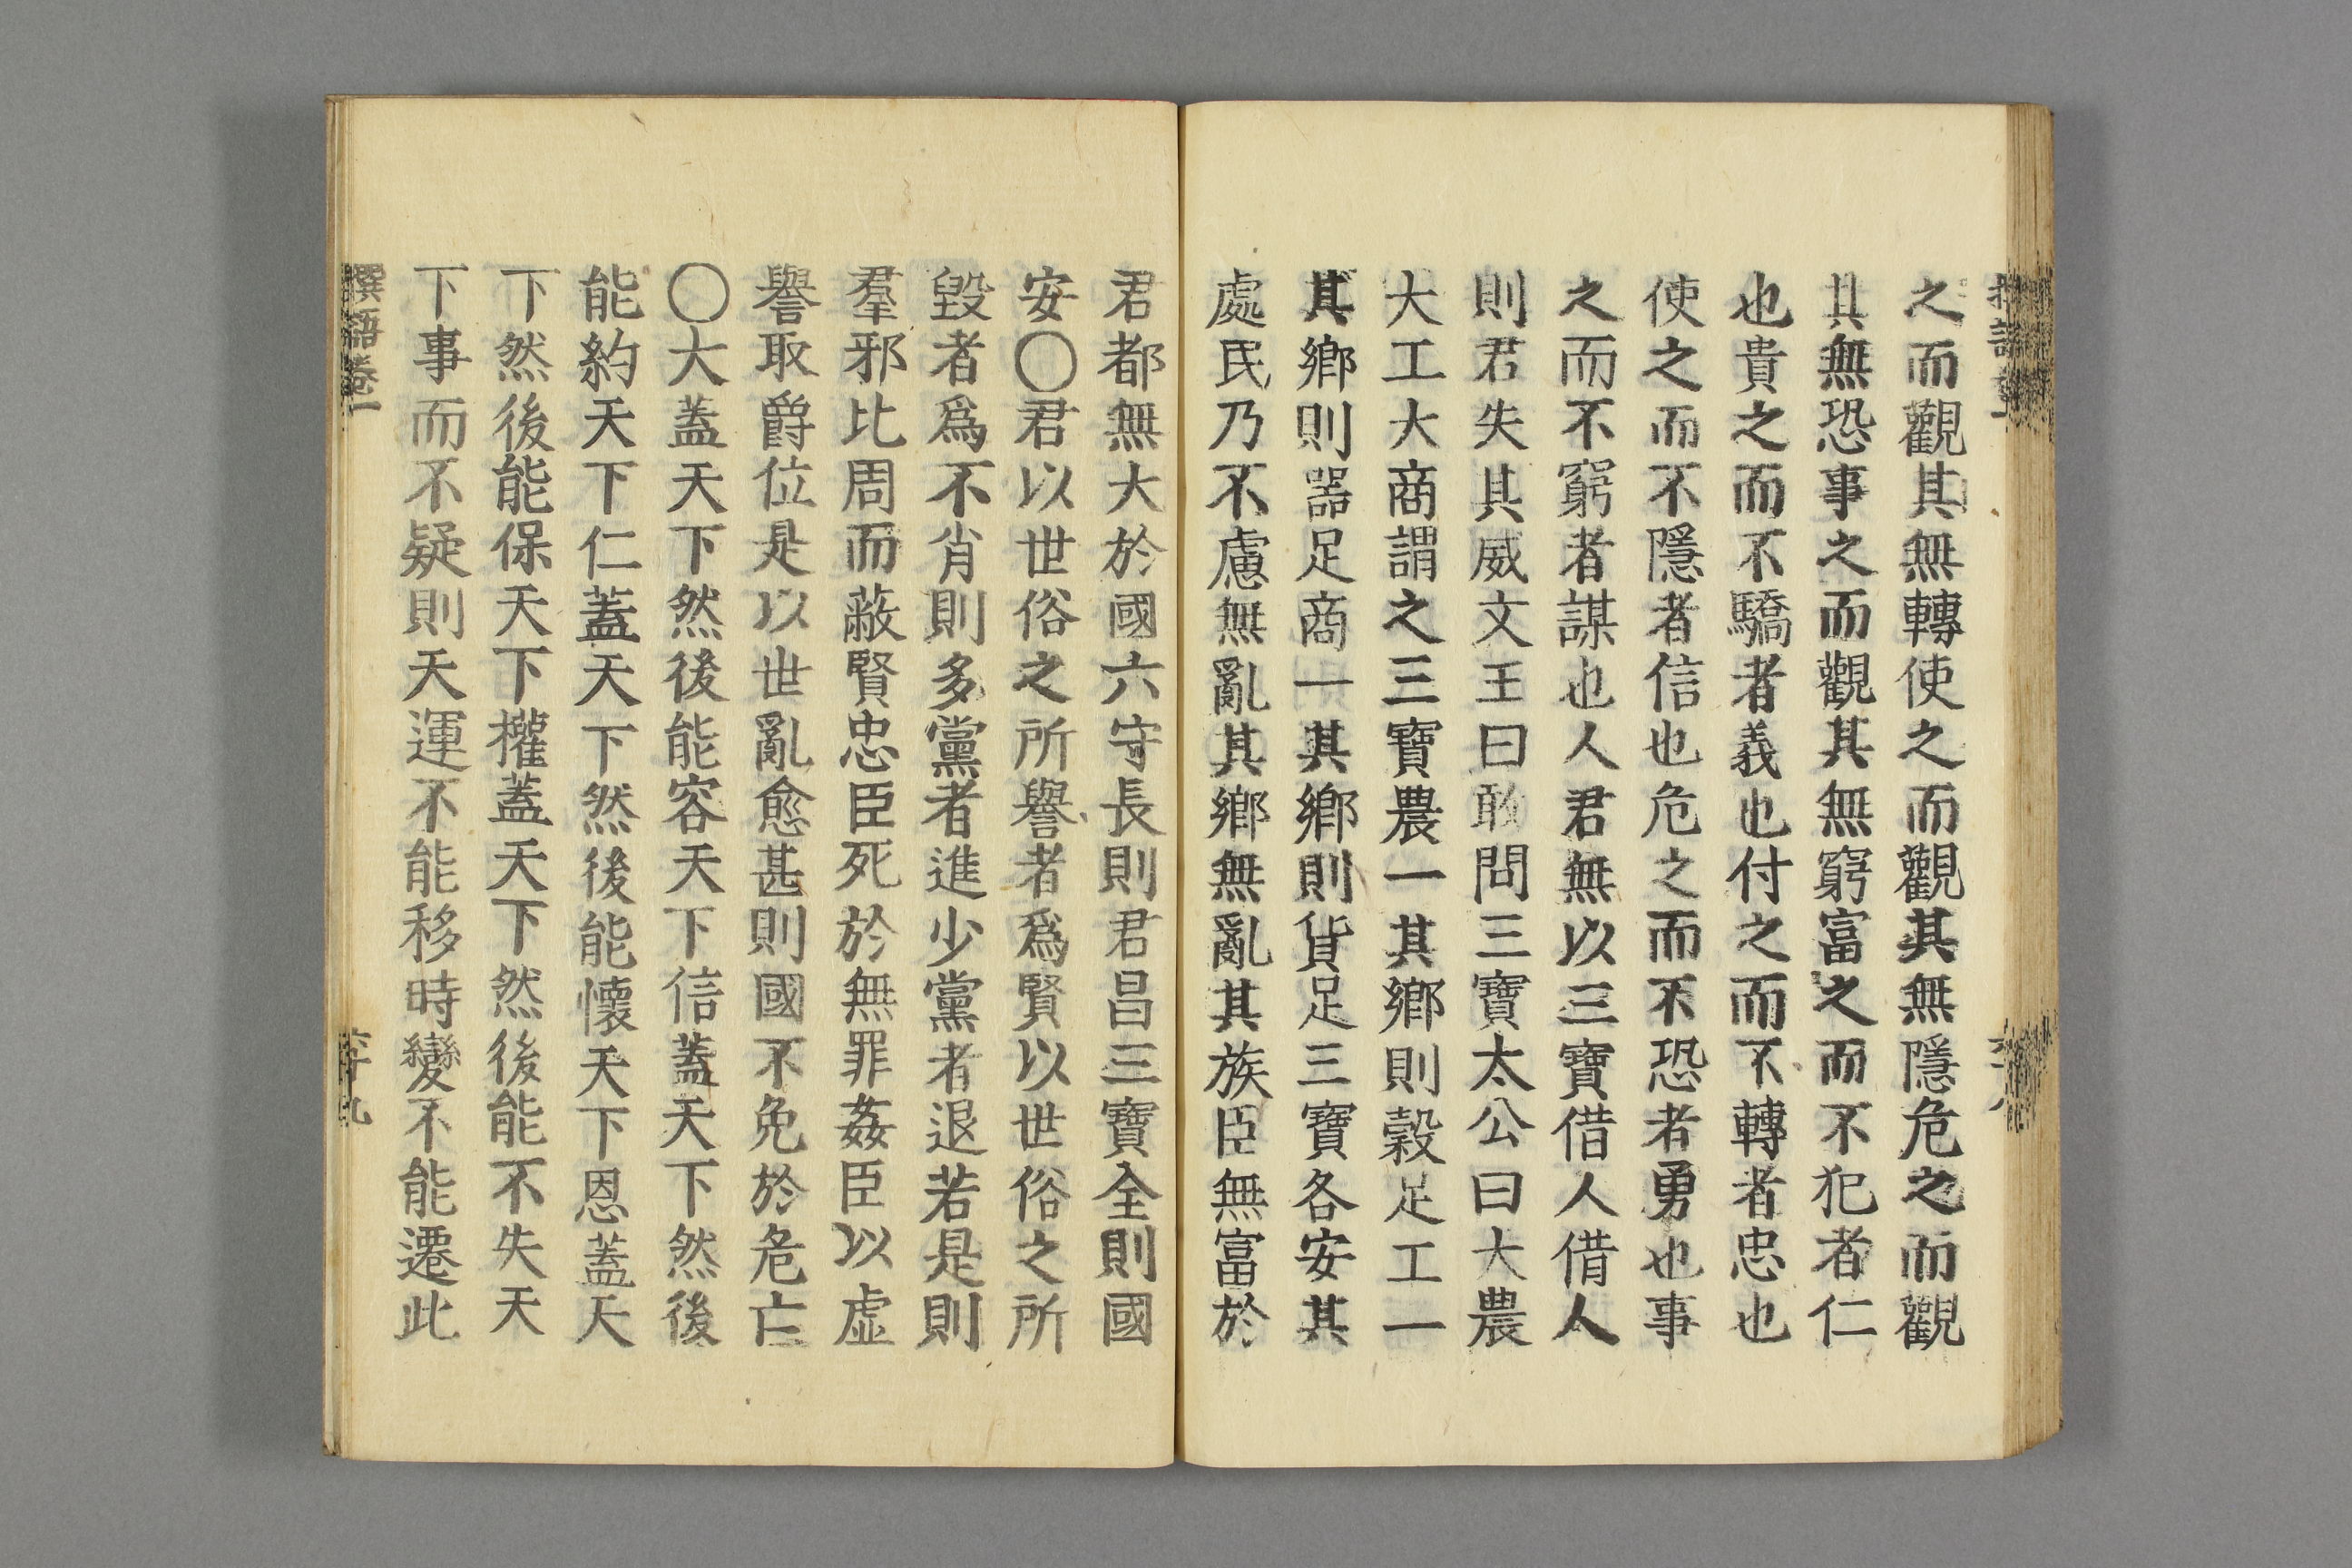 之而觀其無轉使之而觀其無隱危之而觀
其無恐事之而觀其無窮富之而不犯者仁
也貴之而不驕者義也付之而不轉者忠也
使之而不隱者信也危之而不恐者勇也事
之而不窮者謀也人君無以三寶借人借人
則君失其威文王曰敢問三寶太公曰大農
大工大商謂之三寶農一其鄉則穀足工一
其鄉則器足商一其鄉則貨足三寶各安其
處民乃不慮無亂其鄉無亂其族臣無富於
君都無大於國六守長則君昌三寶全則國
安〇君以世俗之所譽者爲賢以世俗之所
毀者爲不肖則多黨者進少黨者退若是則
羣邪比周而蔽賢忠臣死於無罪姦臣以虛
譽取爵位是以世亂愈甚則國不免於危亡
〇大蓋天下然後能容天下信蓋天下然後
能約天下仁蓋天下然後能懷天下恩蓋天
下然後能保天下權蓋天下然後能不失天
下事而不疑則天運不能移時變不能遷此
撰語卷一 六十九